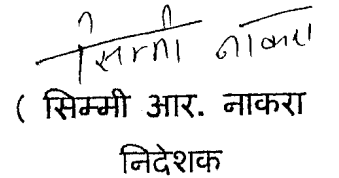 सिम्मी नाकरा
( सिम्मी आर. नाकरा
निदेशक